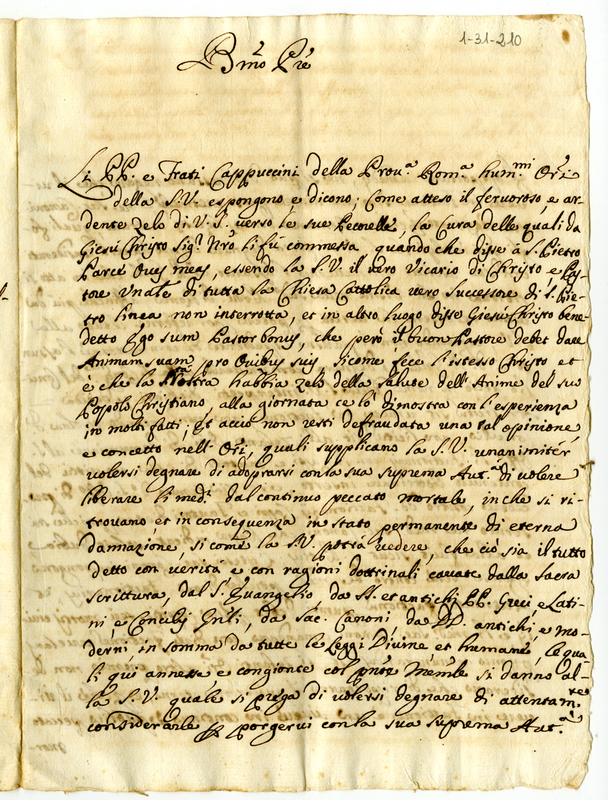 1-31-210
B.mo Pre
Li PP. e Frati Cappuccini della Prou.a Rom.a hum.mi Ori
della S.V. espongono e dicono; Come atteso il feruoroso, e ar-
dente zelo di V.S. verso le sue Pecorelle, la Cura delle quali da
Giesù Christo Sig.r Nrô li fù commessa quando che disse à S. Pietro
Pasce Oues meas, essendo la S.V. il vero Vicario di Christo e Pas-
tore Vnale di tutta la Chiesa Cattolica vero Successore di S. Pie-
tro linea non interrotta, et in altro luogo disse Giesù Christo bene-
detto Ego sum Pastor bonus, che però il buon Pastore debet dare
Animam suam pro Ouibus suis, sicome fece l'istesso Christo et
è che la Vostra habbia zelo della salute dell'Anime del suo
Popolo Christiano, alla giornata ce lo dimostra con l'esperienza
in molti fatti; Et acciò non resti defraudata una tal'opinione
e concetto nell'Ori, quali supplicano la S.V. unanimitér
volersi degnare di adoprarsi con la sua suprema Aut.à di volere
liberare li med.i dal continuo peccato mortale, in che si ri-
trouano et in conseguenza in stato permanente di eterna
dannazione, si come la S.V. potrà vedere, che ciò sia il tutto
detto con verità e con ragioni dottrinali cauate dalla Sacra
Scrittura, dal S. Euangelio da SS. et antichi PP. Greci, e Lati-
ni, e Concilij Gnli, da Sac. Canoni, da DD. antichi, e mo-
derni, in somma da tutte le Leggi Diuine, et humane, le qua-
li qui annesse e congionte col pnte Memle si danno al-
la S.V. quale si prega di volersi degnare di attentam.te
considerarle e porgerui con la sua suprema Aut.à